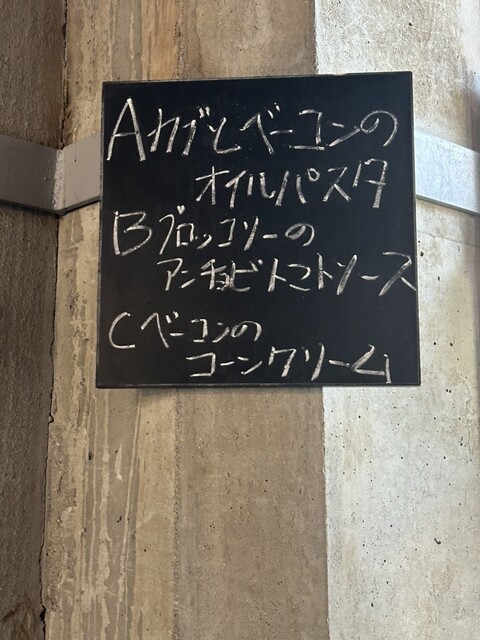 Aカブとベーコンの
オイルパスタ
Bブロッコリーの
アンチョビトマトソース
Cベーコンの
コーンクリーム